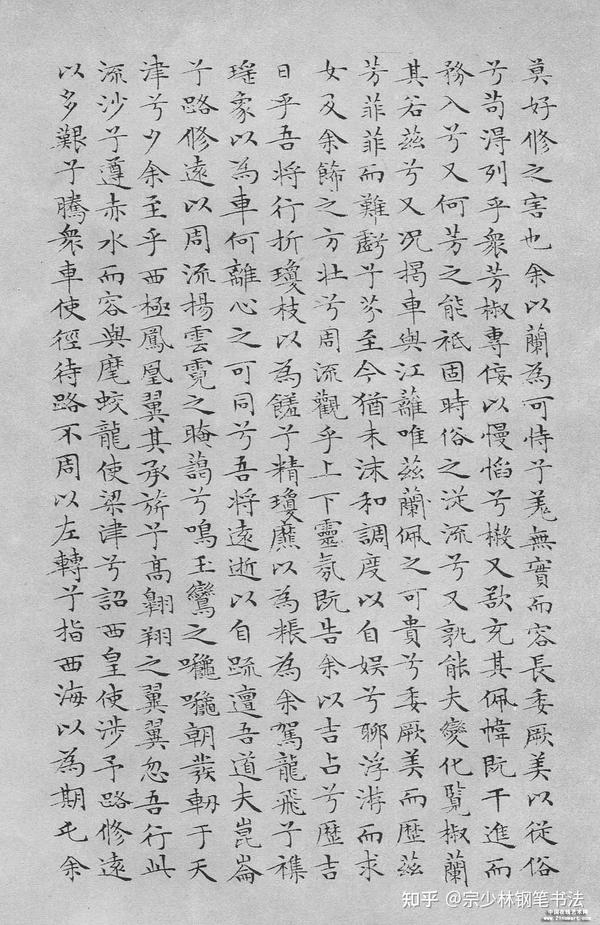 莫好修之害也余以蘭為可恃兮羌無實而容長委厥美以從俗
兮苟得列乎衆芳椒專佞以慢慆兮樧又欲充其佩幃既干進而
務入兮又何芳之能祗固時俗之從流兮又孰能夫變化覽椒蘭
其若茲兮又況揭車與江蘺唯茲蘭佩之可貴兮委厥美而歷茲
芳菲菲而難虧兮芬至今猶未沬和調度以自娛兮聊浮游而求
女及余飾之方壯兮周流觀乎上下靈氛既告余以吉占兮歷吉
日乎吾將行折瓊枝以為饈兮精瓊爢以為粻為余駕龍飛兮襍
瑤象以為車何離心之可同兮吾將遠逝以自疏邅吾道夫崑崙
兮路修遠以周流揚雲霓之晻藹兮鳴玉鸞之啾啾朝發軔于天
津兮夕余至乎西極鳳凰翼其承旂兮高翱翔之翼翼忽吾行此
流沙兮遵赤水而容與麾蛟龍使梁津兮詔西皇使涉予路修遠
以多艱兮騰衆車使徑待路不周以左轉兮指西海以為期屯余
知乎 @宗少林钢笔书法
中国在线艺术网